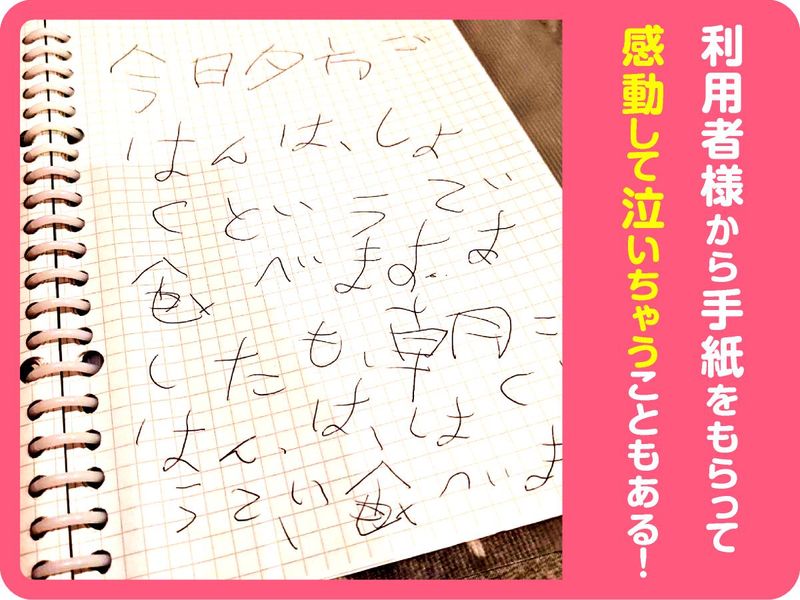 利用者様から手紙をもらって
感動して泣いちゃうこともある！
今日夕方ご
はんは、しょ
くどいうでい
食べます。
したも、朝ご
はん、は、はく
うてい食べま